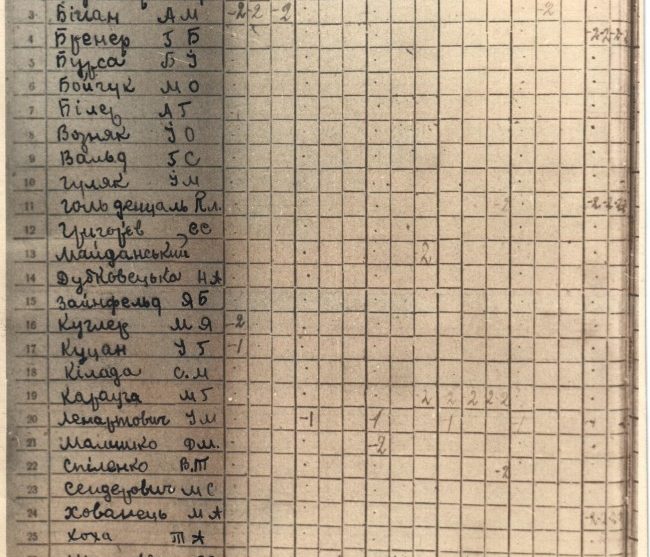 3 Біган А М -2 2 -2 -2
4 Бренер Г Б -2-2-2
5 Бурса Б Й
6 Бойчук М О
7 Білер А Г
8 Возняк Й О
9 Вальд Б С
10 Гуляк Й М
11 Гольденталь Кл. -2 -2-2-2
12 Григорєв ЄЄ
13 Майданський 2
14 Дубковецька Н А
15 Зайнфельд Я Б
16 Куглер М Я -2
17 Куцан У Г -1
18 Кілада С. М
19 Карауга М Г 2 2 2 2 2
20 Ленартович У М -1 1 1 1
21 Малишко Дм. -2
22 Спіленко В.Т -2
23 Сендерович М С
24 Хованець М А
25 Хоха Т А